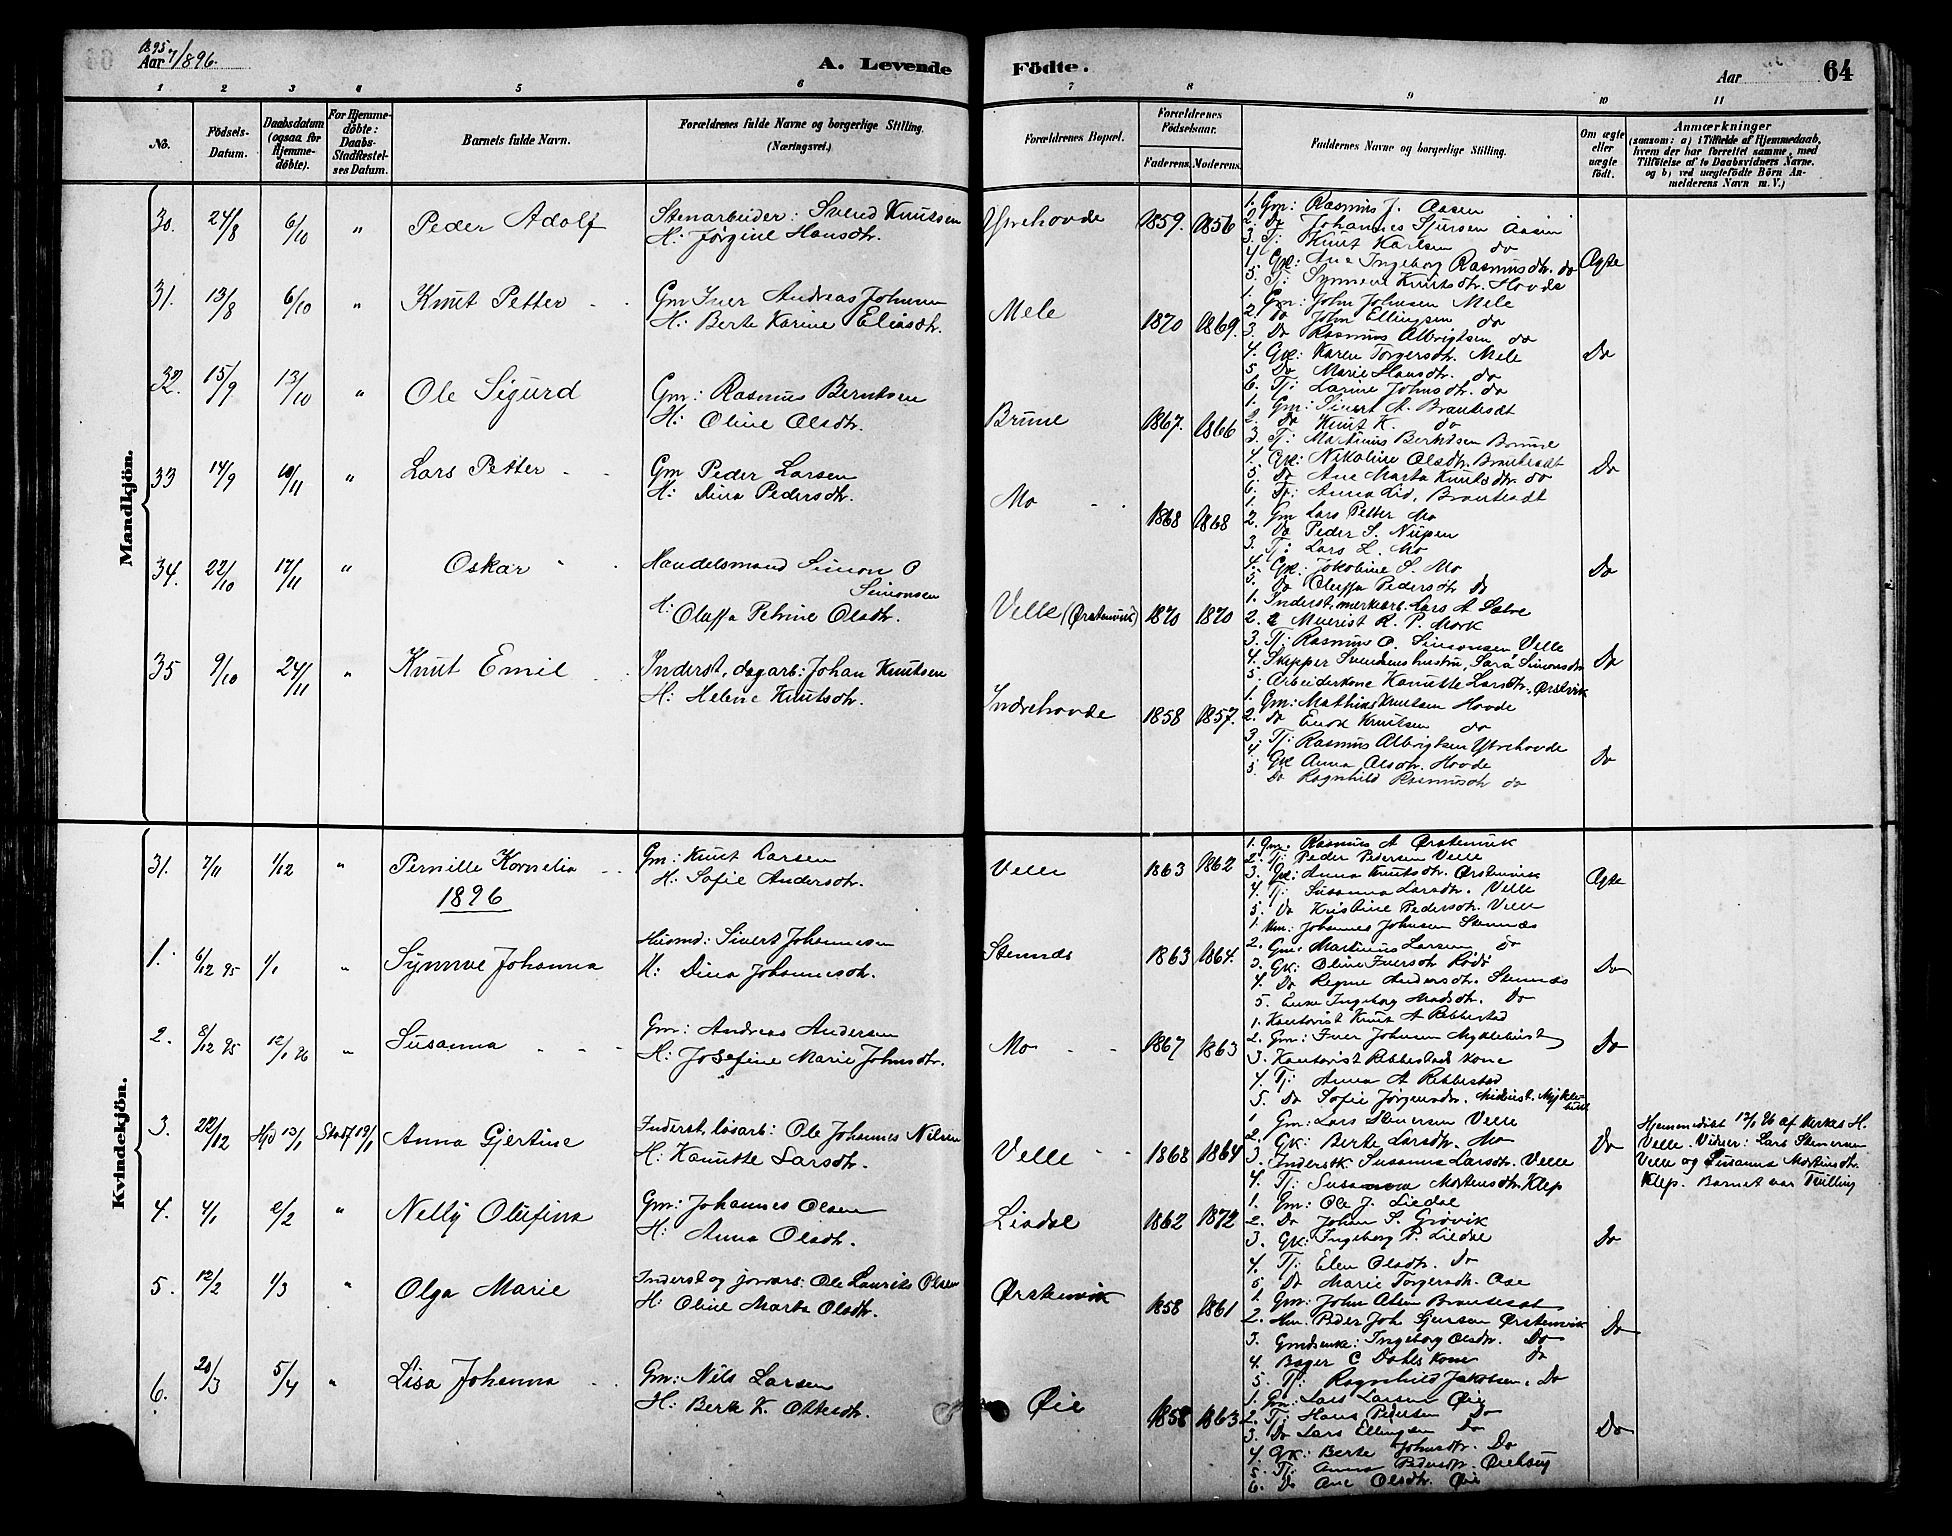 1895
Aar 7/1896.
A. Levende
Födte.
Aar
64
1 2 3 4 5 6 7 8 9 10 11
No.
Födsels-
Datum.
Daabsdatum
(ogsaa for
Hjemme-
döbte).
For Hjemme-
döbte:
Daabs-
Stadfæstel-
ses Datum.
Barnets fulde Navn.
Forældrenes fulde Navne og borgerlige Stilling.
(Næringsvei.)
Forældrenes Bopæl.
Forældrenes
Födselsaar.
Faderens.
Moderens.
Faddernes Navne og borgerlige Stilling.
Om ægte
eller
uægte
födt.
Anmærkninger
(saasom: a) i Tilfælde af Hjemmedaab,
hvem der har forrettet samme, med
Tilföielse af to Daabsvidners Navne.
og b) ved uægtefödte Börn An-
melderens Navn m. V.)
Mandkjön.
30. 24/8 6/10 " Peder Adolf
Stenarbeider: Svend Knutsen
H: Jørgine Hansdtr.
Ytrehovde 1859. 1856
1. Gm: Rasmus J. Aasen
2. Do Johannes Sjursen Aasen
3. Tj: Knut Karlsen do
4. Gk: Ane Ingeborg Rasmusdtr. do
5. Tj: Synneve Knutsdtr. Hovde
Ægte
31. 13/8 6/10 " Knut Petter
Gm Iver Andreas Johnsen
H: Berte Karine Eliasdtr.
Mele 1870 1869.
1. Gm: John Johnsen Mele
2. Do John Ellingsen do
3. Do Rasmus Albrigtsen do
4. Gk: Karen Torgersdtr. Mele
5. Do Marie Hansdtr. do
6. Tj: Larine Johnsdtr. do
Do
32. 15/9 13/10 " Ole Sigurd
Gm: Rasmus Berntsen
H: Oline Olsdtr.
Brune 1867. 1866
1. Gm: Sivert A. Brautesæt
2. Do Knut K. do
3. Tj: Martinus Berntsen Brune
4. Gk: Nikoline Olsdtr. Brautesæt
5. Do Ane Marta Knutsdtr. do
6. Tj: Anna Lid, Brautesæt
Do
33 14/9 10/11 " Lars Petter
Gm Peder Larsen
H: Dina Pedersdtr.
Mo 1868 1868
1. Gm Lars Petter Mo
2. Do Peder S. Nupen
3. Tj: Lars L. Mo
4. Gk: Jakobine S. Mo
5. Do Oluffa Pedersdtr Do
Do
34. 22/10 17/11 " Oskar
Handelsmand Simon O
Simonsen
H: Oluffa Petrine Olsdtr.
Velle (Ørstenvik) 1870 1870
1. Inderst, merkearb. Lars A Sætre
2. Murerst R. P. Mork
3. Tj: Rasmus O. Simonsen Velle
4. Skipper Svendsens hustru, Sara Simonsdtr
5. Arbeiderkone Kanutte Larsdtr, Ørstvik
Do
35 9/10 24/11 " Knut Emil
Inderst, dagarb: Johan Knutsen
H: Helene Knutsdtr.
Indrehovde 1858 1857.
1. Gm: Mathias Knutsen Hovde
2. Do Enok Knutsen do
3. Tj: Rasmus Albrigtsen Ytrehovde
4. Gk Anna Olsdtr. Hovde
5. Do Ragnhild Rasmusdtr do
Do
Kvindekjön.
31. 7/11 1/12 " Pernille Kornelia
Gm: Knut Larsen
H: Sofie Andersdtr.
Velle 1863 1862
1. Gm. Rasmus A Ørstenvik
2. Tj: Peder Pedersen Velle
3. Gk: Anna Knutsdtr. Ørstenvik
4. Tj: Susanna Larsdtr. Velle
5. Do Kristine Pedersdtr. Velle
Ægte
1896
1. 6/12 95 1/1 " Synnve Johanna
Husmd: Sivert Johannesen
H: Dina Johannesdtr.
Stennes 1863 1864.
1. Hm: Johannes Johnsen Stennæs
2. Gm: Martinus Larsen do
3. Gk: Oline Iversdtr
4. Do Regine Andersdtr. Stennæs
5. Enke Ingeborg Madsdtr. Do
Do
2. 8/12 95 12/1 96 " Susanna
Gm: Andreas Andersen
H: Josefine Marie Johnsdtr.
Mo 1867 1863
1. Kontorist Knut A Ribbestad
2. Gm: Iver Johnsen Myklebust
3. Kontorist Ribbestads kone
4. Tj: Anna A Ribbestad
5. Do Sofie Jørgensdtr. Myklebust
Do
3. 22/12 Hjd 13/1 Stadf 19/1 Anna Gjertine
Inderst, løsarb: Ole Johannes Nilsen
H: Kanutte Larsdtr.
Velle 1868 1864
1. Gm: Lars Stenersen Velle
2. Gk: Berte Larsdtr. Mo
3. Inderstk Susanna Larsdtr. Velle
4. Tj: Susanna Mortensdtr. Klep
Do
Hjemmedøbt 13/1 96 af H.
Velle. Vidner: Lars Stenersen
Velle og Susanna Mortensdtr.
Klep. Barnet var Tvilling
4. 4/1 2/2 " Nelly Olufina
Gm: Johannes Olsen
H: Anna Olsdtr.
Liadal 1862 1872
1. Gm: Ole J. Liedal
2. Do Johan S. Grøvik
3. Gk: Ingeborg P. Liedal
4. Tj: Elen Olsdtr. Do
5. Do Marie Torgersdtr. Ose
Do
5. 12/2 1/3 " Olga Marie
Inderst og jornarb: Ole Laurits Olsen
H: Oline Marta Olsdtr.
Ørstenvik 1858 1861
1. Gm: John Olsen Brautesæt
2. Hm. Peder Joh Sjursen Ørstenvik
3. Gmdsenke: Ingeborg Olsdtr. Do
4. Bager C Dahls kone do
5. Tj: Ragnhild Jakobsen. Do
Do
6. 20/3 5/4 " Lisa Johanna
Gm: Nils Larsen
H: Berte K. Ottesdtr.
Øie 1858 1863
1. Gm: Lars Larsen Øie
2. Tj: Hans Pedersen Do
3. Do Lars Ellingsen Do
4. Gk: Berte Johnsdtr. Do
5. Tj: Anna Pedersdtr.
6. Do Ane Olsdtr. Øie
Do